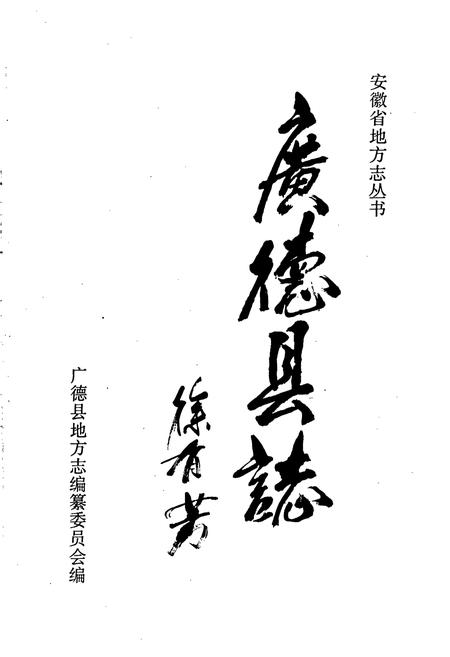 安徽省地方志丛书
廣德县誌
徐有芳
广德县地方志编纂委员会编